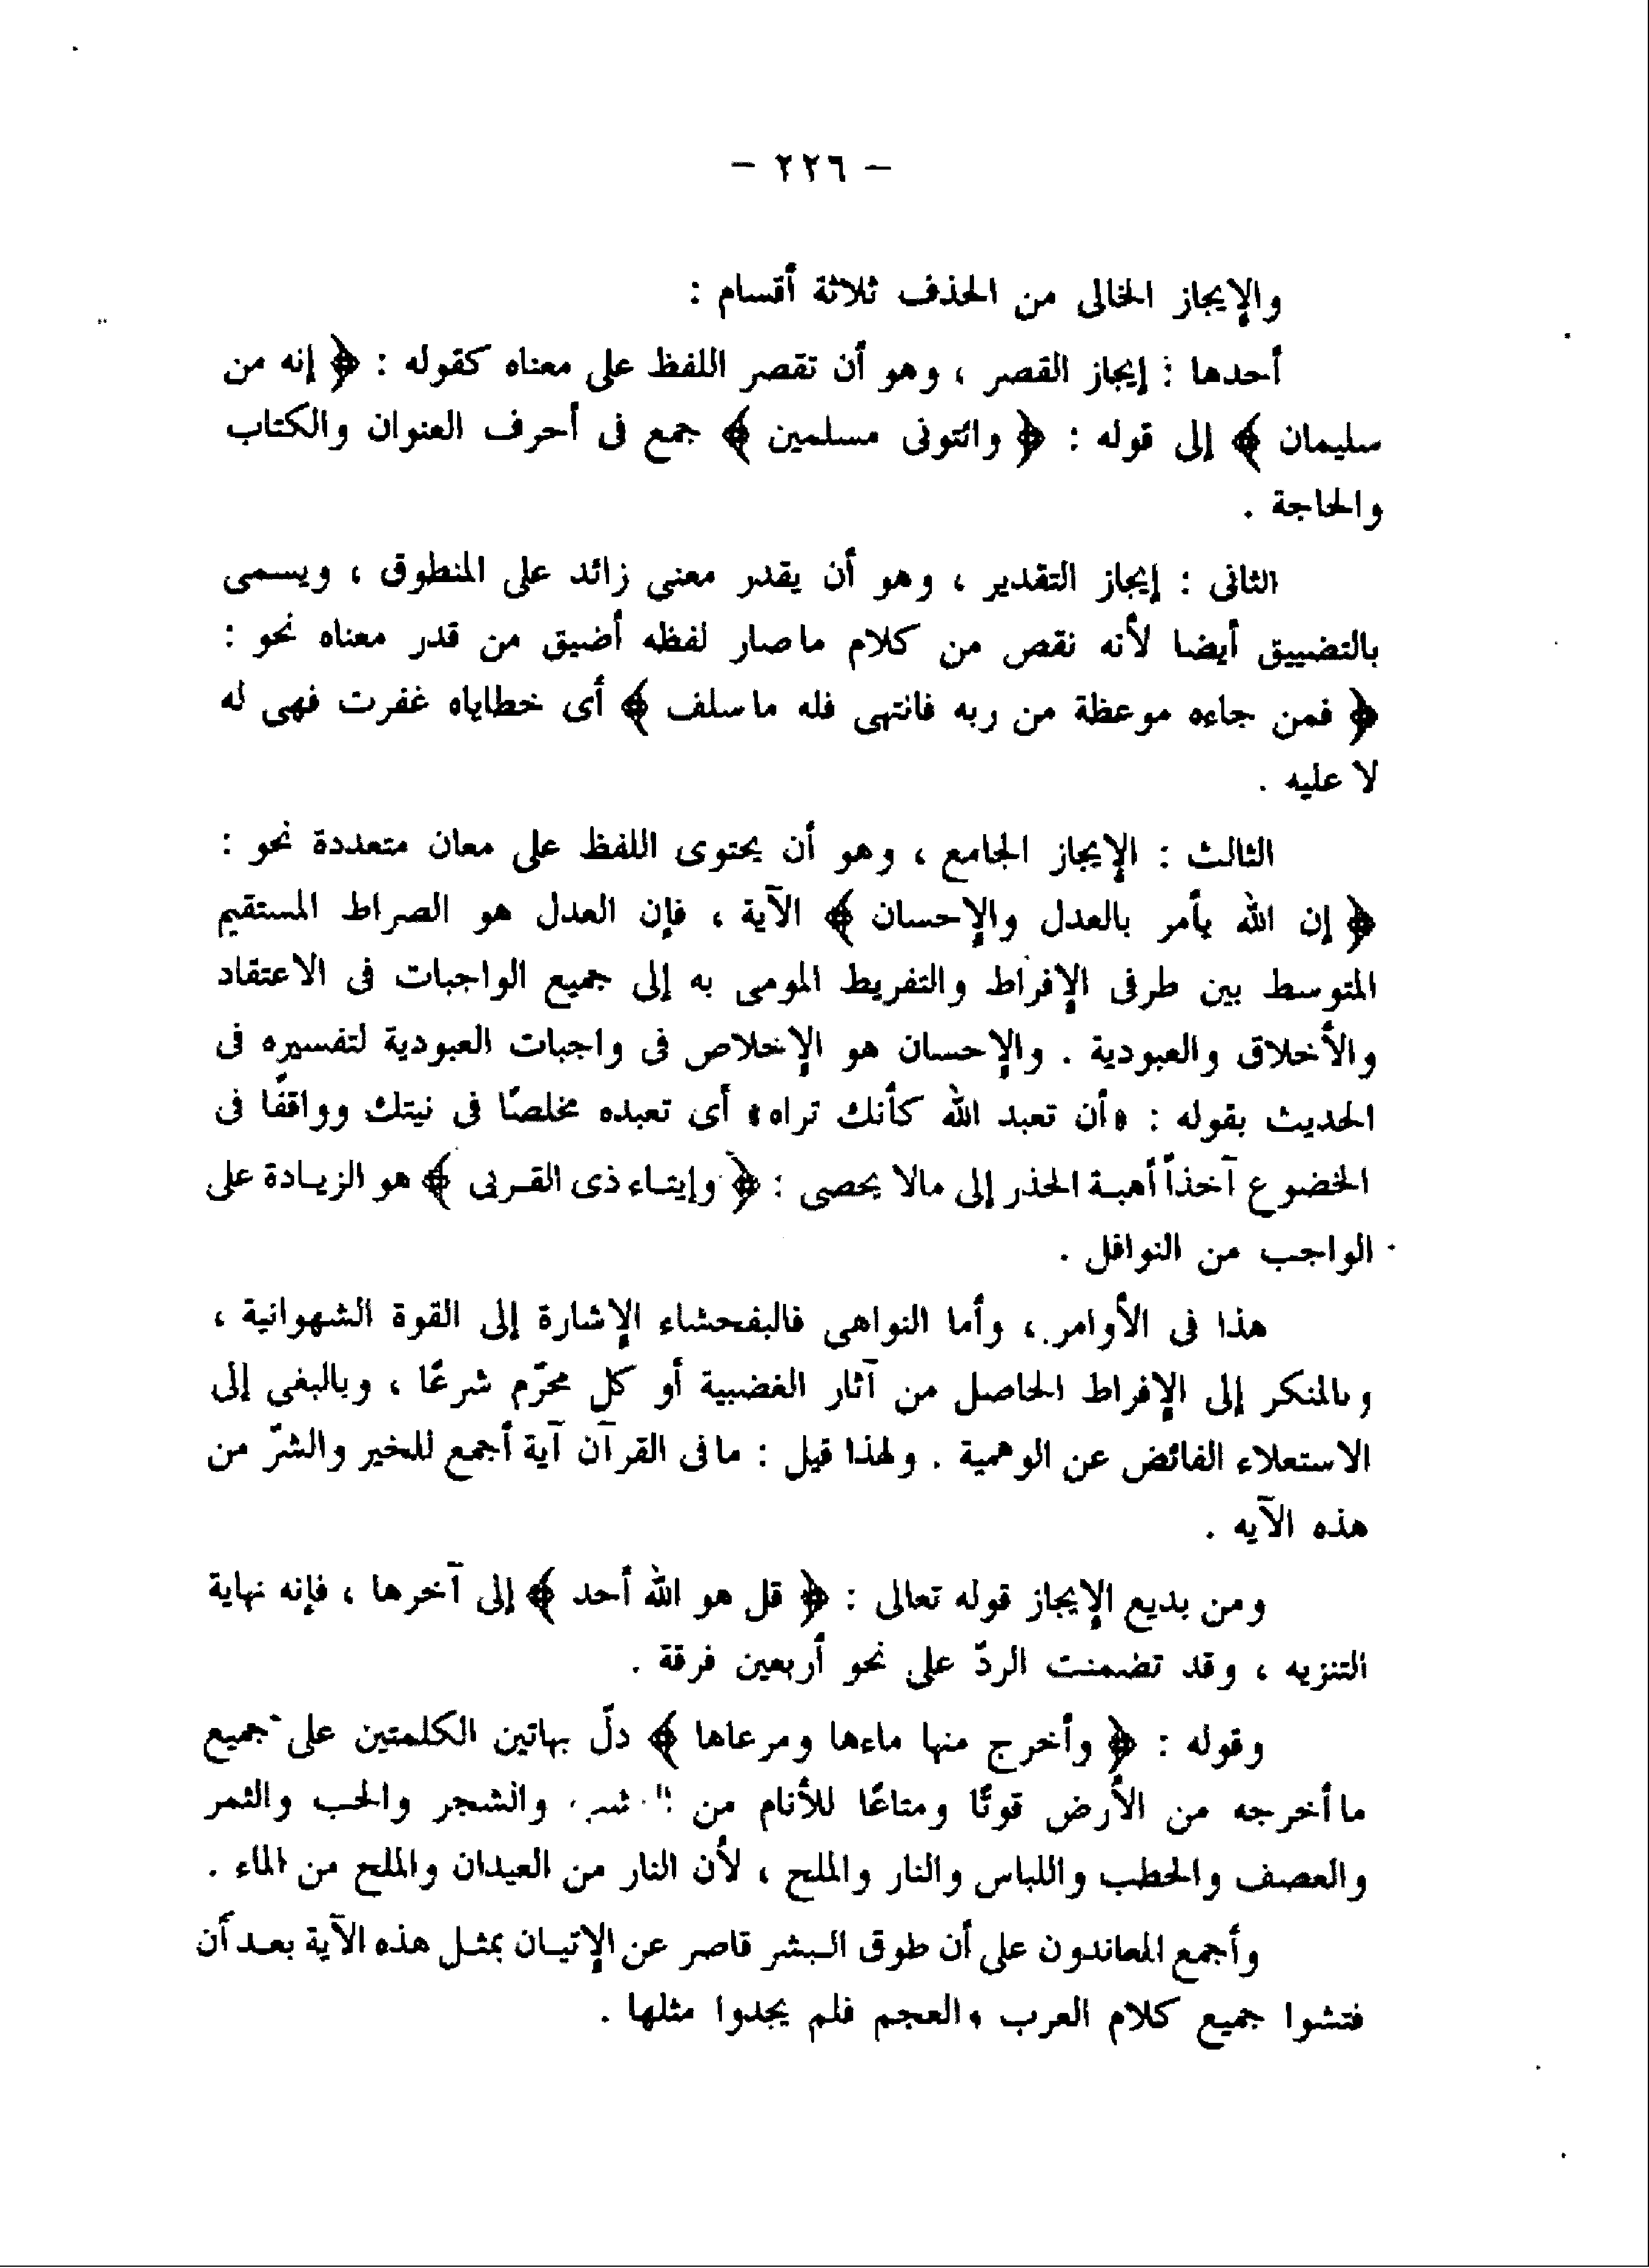 - ٢٢٦ -
والإيجاز الخالى من الحذف ثلاثة أقسام :
أحدها : إيجاز القصر ، وهو أن تقصر اللفظ على معناه كقوله : ﴿ إنه من
سليمان ﴾ إلى قوله : ﴿ وائتونى مسلمين ﴾ جمع فى أحرف العنوان والكتاب
والحاجة .
الثانى : إيجاز التقدير ، وهو أن يقدر معنى زائد على المنطوق ، ويسمى
بالتضييق أيضا لأنه نقص من كلام ماصار لفظه أضيق من قدر معناه نحو :
﴿ فمن جاءه موعظة من ربه فانتهى فله ماسلف ﴾ أى خطاياه غفرت فهى له
لا عليه .
الثالث : الإيجاز الجامع ، وهو أن يحتوى اللفظ على معان متعددة نحو :
﴿ إن الله يأمر بالعدل والإحسان ﴾ الآية ، فإن العدل هو الصراط المستقيم
المتوسط بين طرفى الإفراط والتفريط المومى به إلى جميع الواجبات فى الاعتقاد
والأخلاق والعبودية . والإحسان هو الإخلاص فى واجبات العبودية لتفسيره فى
الحديث بقوله : «أن تعبد الله كأنك تراه» أى تعبده مخلصًا فى نيتك وواقفًا فى
الخضوع آخذاً أهبة الحذر إلى مالا يحصى : ﴿ وإيتاء ذى القربى ﴾ هو الزيادة على
الواجب من النوافل .
هذا فى الأوامر ، وأما النواهى فالبفحشاء الإشارة إلى القوة الشهوانية ،
وبالمنكر إلى الإفراط الحاصل من آثار الغضبية أو كل محرّم شرعًا ، وبالبغى إلى
الاستعلاء الفائض عن الوهمية . ولهذا قيل : مافى القرآن آية أجمع للخير والشرّ من
هذه الآيه .
ومن بديع الإيجاز قوله تعالى : ﴿ قل هو الله أحد ﴾ إلى آخرها ، فإنه نهاية
التنزيه ، وقد تضمنت الردّ على نحو أربعين فرقة .
وقوله : ﴿ وأخرج منها ماءها ومرعاها ﴾ دلّ بهاتين الكلمتين على جميع
ماأخرجه من الأرض قوتًا ومتاعًا للأنام من والشجر والحب والثمر
والعصف والحطب واللباس والنار والملح ، لأن النار من العيدان والملح من الماء .
وأجمع المعاندون على أن طوق البشر قاصر عن الإتيان بمثل هذه الآية بعد أن
فتشوا جميع كلام العرب والعجم فلم يجدوا مثلها .